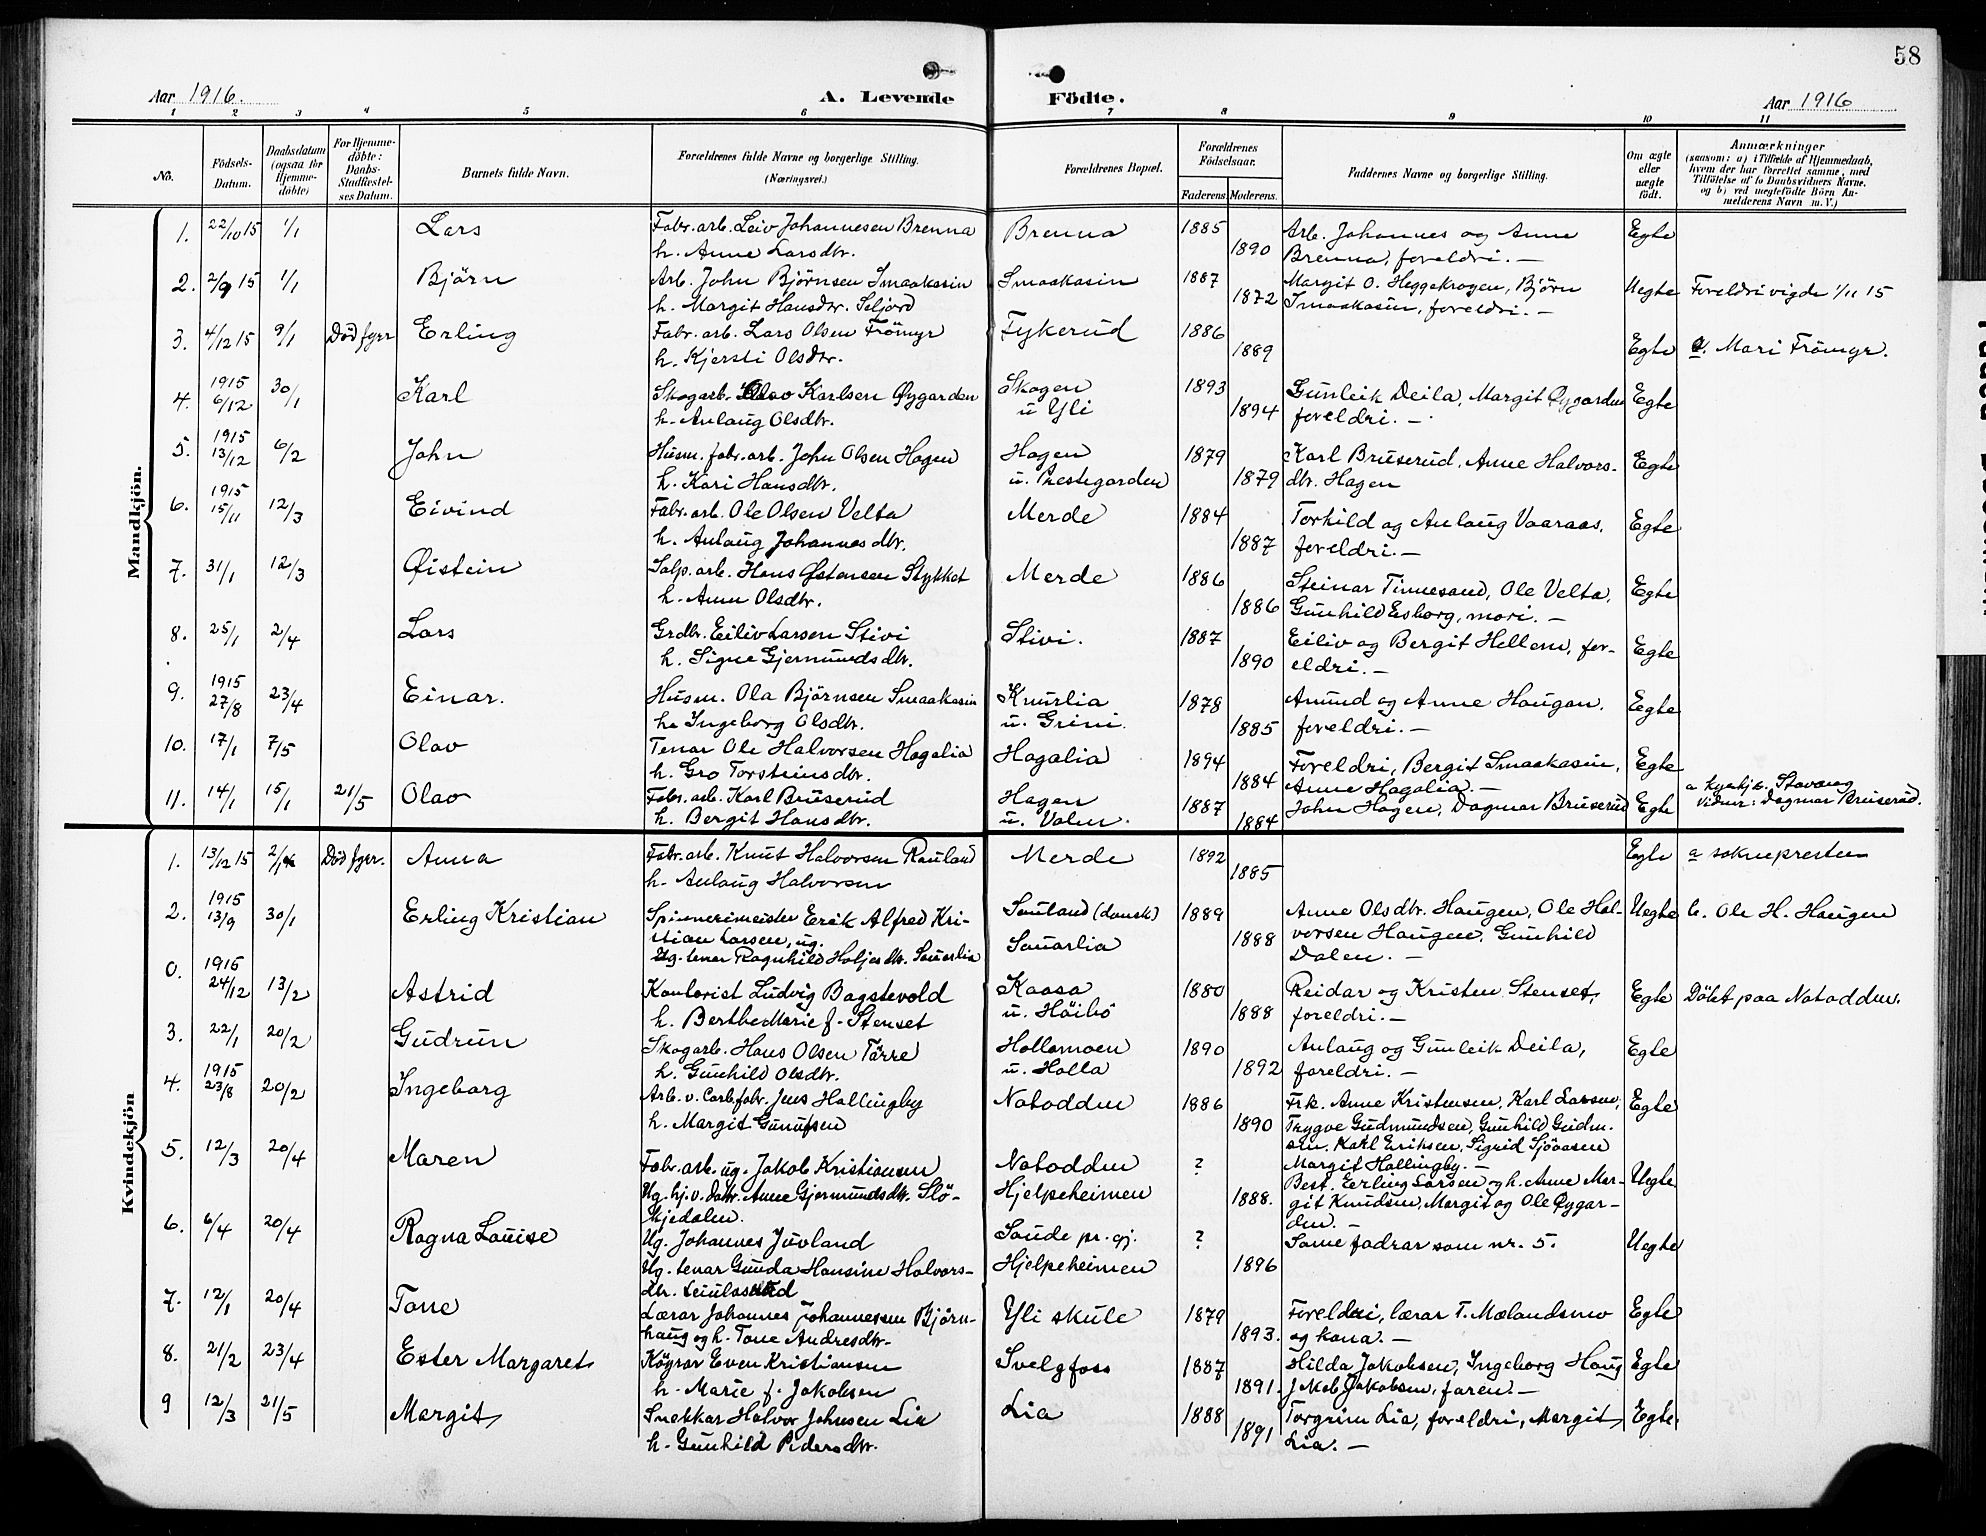 58
Aar 1916.
A. Levende
Födte.
Aar 1916
1 2 3 4 5 6 7 8 9 10 11
No.
Födsels-Datum.
Daabsdatum (ogsaa for Hjemmedöbte)
For Hjemmedöbte: Daabs-Stadfæstelses Datum.
Barnets fulde Navn.
Forældrenes fulde Navne og borgerlige Stilling. (Næringsvei.)
Forældrenes Bopæl.
Forældrenes Födselsaar.
Faderens. Moderens.
Faddernes Navne og borgerlige Stilling.
Om ægte eller uægte födt.
Anmærkninger (saasom: a) i Tilfælde af Hjemmedaab, hvem der har forrettet samme, med Tilföielse af to Daabsvidners Navne, og b) ved uægtefödte Börn Anmelderens Navn m. V.)
Mandkjön.
1. 22/10 15 1/1 Lars Fabr. arb. Leiv Johannesen Brenna Brenna 1885 Arb. Johannes og Anne Egte
h. Anne Larsdtr. 1890 Brenna, foreldri. —
2. 2/9 15 1/1 Björn Arb. John Bjørnsen Smaakasin Smaakasin 1887 Margit O. Heggekrogen, Bjørn Uegte Foreldri vigde 1/11 15
h. Margit Hansdtr. Seljord 1872 Smaakasin, foreldri. —
3. 4/12 15 9/1 Död fyrr Erling Fabr. arb. Lars Olsen Frömyr Tykerud 1886
h. Kjersti Olsdtr. 1889 Egte a. Mari Frömyr.
4. 1915 6/12 30/1 Karl Skogarb. Olav Karlsen Øygarden Skogen 1893 Gunleik Deila, Margit Øygarden Egte
h. Anlaug Olsdtr. u Yli 1894 foreldri. —
5. 1915 13/12 6/2 John Husm. fabr. arb. John Olsen Hagen Hagen 1879 Karl Bruserud, Anne Halvors- Egte
h. Kari Hansdtr. u. Prestegarden 1879 dtr. Hagen
6. 1915 15/11 12/3 Eivind Fabr. arb. Ole Olsen Velta Merde 1884 Torhild og Anlaug Vaaraas, Egte
h. Anlaug Johannesdtr. 1887 foreldri. —
7. 31/1 12/3 Øistein Salp. arb. Hans Østensen Stykket Merde 1886 Steinar Tinnesand, Ole Velta, Egte
h. Anne Olsdtr. 1886 Gunhild Esborg, mori. —
8. 25/1 2/4 Lars Grdbr. Eiliv Larsen Stivi Stivi. 1887 Eiliv og Bergit Hellem, for- Egte
h. Signe Gjermundsdtr. 1890 eldri. —
9. 1915 27/8 23/4 Einar. Husm. Ola Bjørnsen Smaakasin Knurlia 1878 Amund og Anne Haugan, Egte
h. Ingeborg Olsdtr. u. Grini. 1885 foreldri. —
10. 17/1 7/5 Olav Tenar Ole Halvorsen Hagalia Hagalia 1894 Foreldri, Bergit Smaakasin, Egte
h. Gro Torsteinsdtr. 1884 Anne Hagalia. —
11. 14/1 15/1 21/5 Olav Fabr. arb. Karl Bruserud Hagen 1887 John Hagen, Dagmar Bruserud Egte a kyrkjs. Stavang
h. Bergit Hansdtr. u. Valen. 1884 Vidnir: Dagmar Bruserud.
Kvindekjön
1. 13/12 15 Död fyrr. Anna Fabr. arb. Knut Halvorsen Rauland Merde 1892 Egte a soknepresten
h. Anlaug Halvorsen 1885
2. 1915 13/9 30/1 Erling Kristian Spinnerimeister Erik Alfred Kri- Sauland (dansk) 1889 Anne Olsdtr. Haugen, Ole Hal- Uegte b. Ole H. Haugen
stian Larsen, ug. Sauarlia 1888 vorsen Haugen, Gunhild
Ug. tenar Ragnhild Holjesdtr. Sauarlia Dalen. —
0. 1915 24/12 13/2 Astrid Kontorist Ludvig Bagstevold Kaasa 1880 Reidar og Kristen Stenset, Egte Döbt paa Notodden.
h. Berthe Marie f. Stenset u. Höibö 1888 foreldri. —
3. 22/1 20/2 Gudrun Skogarb. Hans Olsen Tärre Hollamoen 1890 Anlaug og Gunleik Deila, Egte
h. Gunhild Olsdtr. u. Holla 1892 foreldri. —
4. 1915 23/8 20/2 Ingeborg Arb. v. Carbfabr. Jens Hallingby Notodden 1886 Frk. Anne Kristensen, Karl Larsen, Egte
h. Margit Gunufsen 1890 Trygve Gudmundsen, Gunhild Gudm-
sen, Karl Eriksen, Sigrid Sjöaasen
Margit Hallingby. —
5. 12/3 20/4 Maren Fabr. arb. ug. Jakob Kristiansen Notodden ? Best. Erling Larsen og h. Anne Mar- Uegte
Ug. hj. v. datr. Anne Gjermundsdtr. Slö- Hjelpeheimen 1888. git Knudsen, Margit og Ole Øygar-
kjedalen. den. —
6. 6/4 20/4 Ragna Louise Ug. Johannes Juvland Saude pr. gj. ? Same fadrar som nr. 5. Uegte
Ug. tenar Gunda Hansine Halvors- Hjelpeheimen 1896
dtr.
7. 12/1 20/4 Tone Lærar Johannes Johannessen Björn- Yli skule 1879 Foreldri, lærar T. Mælandsmo Egte
haug og h. Tone Andresdtr. 1893. og kona. —
8. 21/2 23/4 Ester Margaret Köyrar Even Kristiansen Svelgfoss 1887 Hilda Jakobsen, Ingeborg Haug Egte
h. Marie f. Jakobsen 1891. Jakob Jakobsen, faren. —
9 12/3 21/5 Margit Snekkar Halvor Johnsen Lia Lia 1888 Torgrim Lia, foreldri, Margit Egte.
h. Gunhild Pedersdtr. 1891 Lia. —